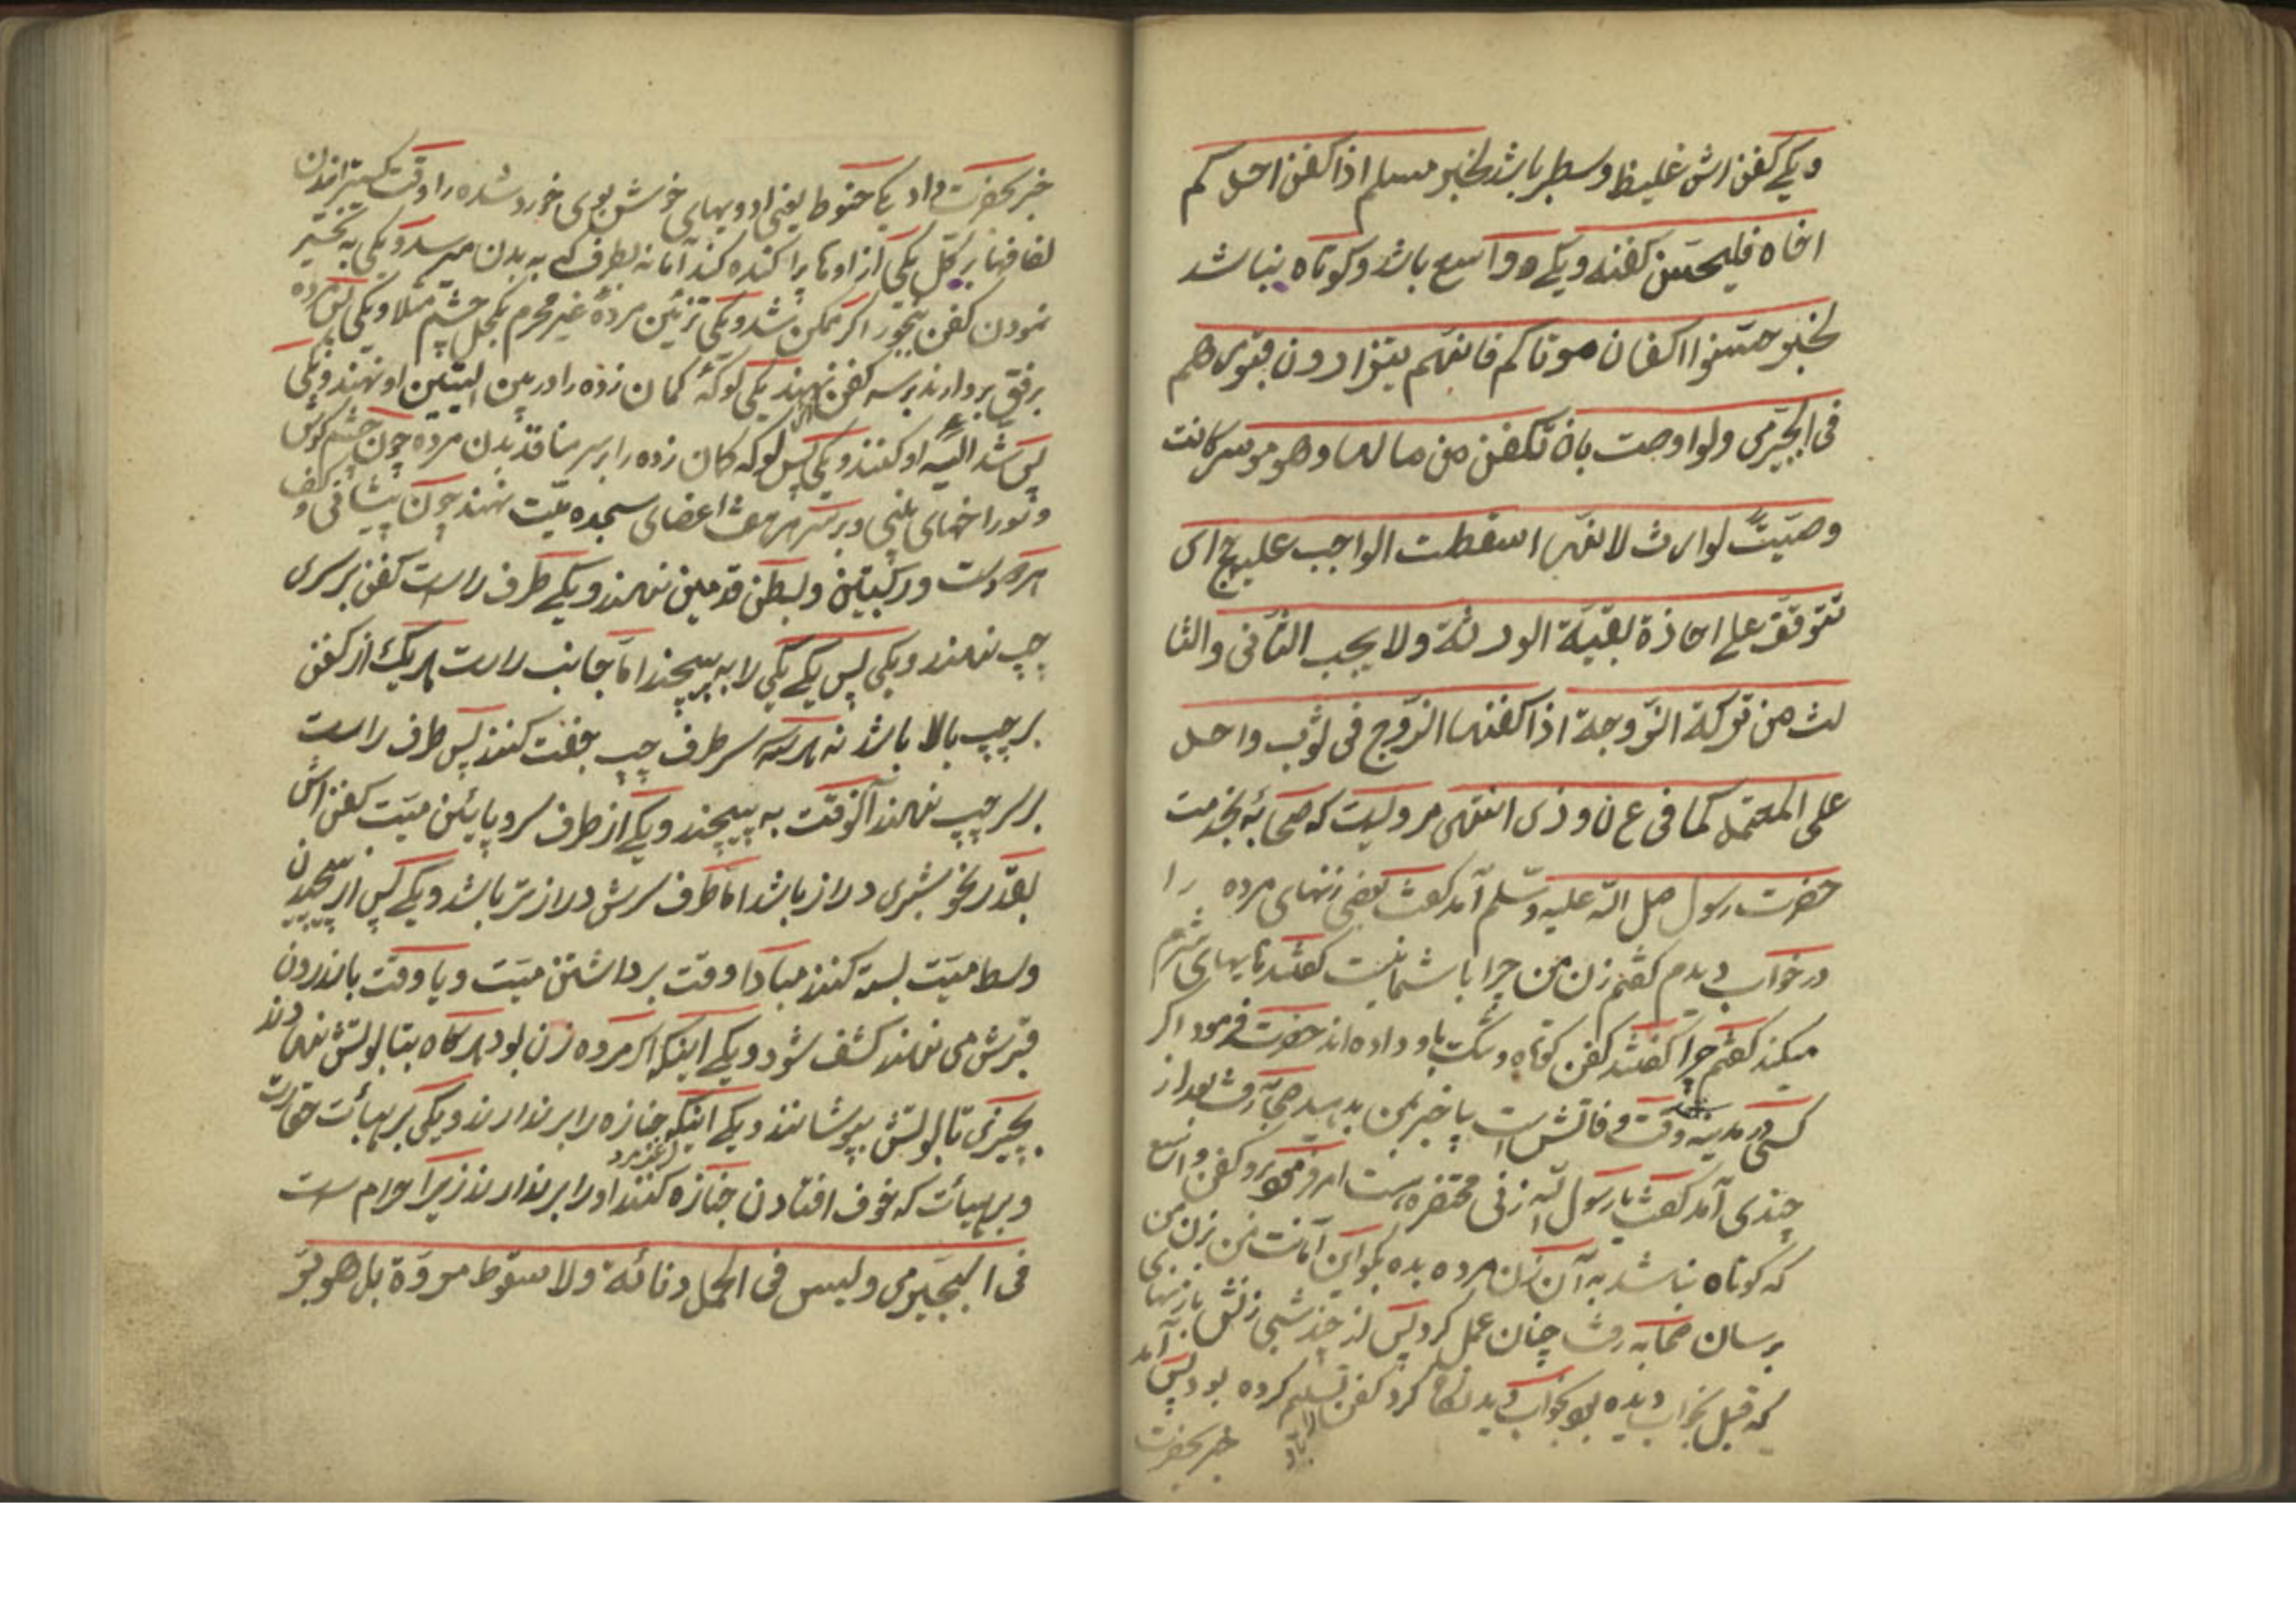 ویکے کفن اش غلیظ وسطبر باشد لخبر مسلم اذا کفن احد کم
اخاه فلیحسن کفنه ویکے وواسع باشد وکوتاه نباشد
لخبر حسنوا اکفان موتاکم فانهم یتزاورون فی قبورهم
فی البجیرمی ولو اوصت بان تکفن من مالها وهو موسر کانت
وصیّتً لوارث لانهّا اسقطت الواجب علیه ج ای
تتوقف علی اجازة بقیّة الورثة ولا یجب الثانی والثا
لث من ترکة الزّوجة اذا کفنها الزّوج فی ثوب واحد
علی المعتمد کما فی ع ن و ذی انتهی مرویست که صحابهٔ بخدمت
حضرت رسول صل الله علیه وسّلم آمد گفت بعضی زنهای مرده را
درخواب دیدم گفتم زن من چرا باشما نیست گفتند مایهای شرم
میکند گفتم چرا گفتند کفن کوتاه وتنگ باو داده اند حضرت فرمود اگر
کسی در مدینه وقت وفاتش است پاخبر بمن بدهید صحابه رفت بعد از
چندی آمد گفت یا رسول الله زنی محتضره است امر فرمود برو کفن واسع
که کوتاه نباشد به آن زن مرده بده بگو این امانت من بزن من
برسان صحابه رفت چنان عمل کرد پس از چند شبی زنش بازنهای
که قبل بخواب دیده بود بخواب دید نگاه کرد کفن تسلیم کرده بود پس آمد
خبر بحضرت
خبر بحضرت داد یکی حنوط یعنی ادویهای خوش بوی خورد شده را وقت گسترانیدن
لفافها بر کل یکی از اوها پراکنده کند اما نه بطرف که به بدن میرسد ویکی به تبخیر
نمودن کفن ببخور اگر ممکن شد ویکی تزئین مردهٔ غیر محرم بکحل چشم مثلا ویکی لش مرده
برفق بردارند بر سه کفن نهند یکی لوکهٔ کمان زده را در بین الیتین او نهند ویکی
پس شد الیه او کنند ویکی پس لوکه کمان زده را برسر منافذ بدن مرده چون چشم گوش
وسوراخهای بینی وبرسر هفت اعضای سجده میت نهند چون پیشانی و کف
هردو دست ورکبتین وبطن قدمین نهند ویکے طرف راست کفن برسری
چپ نهند ویکی پس یکے یکی را به پیچند امّا جانب راست هریک از کفن
بر چپ بالا باشد نه هرسه سر طرف چپ جفت کنند پس طرف راست
برسر چپ نهند آنوقت به پیچند ویکے از طرف سر وپایئن میّت کفن اش
بقدر نحو شبری دراز باشد امّا طرف سرش درازتر باشد ویکے پس از پیچیدن
وسط میّت بسته کنند مبادا وقت برداشتن میّت ویا وقت باندرون
قبرش می نهند کشف شود ویکے اینکه اگر مرده زن بود هرگاه بتابوتش نهادند
بچیزی تابوتش بپوشانند ویکے اینکه جنازه را برندارند ویکی بر هیأت حقارت
وبر هیأت که خوف افتادن جنازه کنند اورا برندارند زیرا حرام ست
فی البجیرمی ولیس فی الحمل دنائة ولا سقوط مروّة بل هو بّر